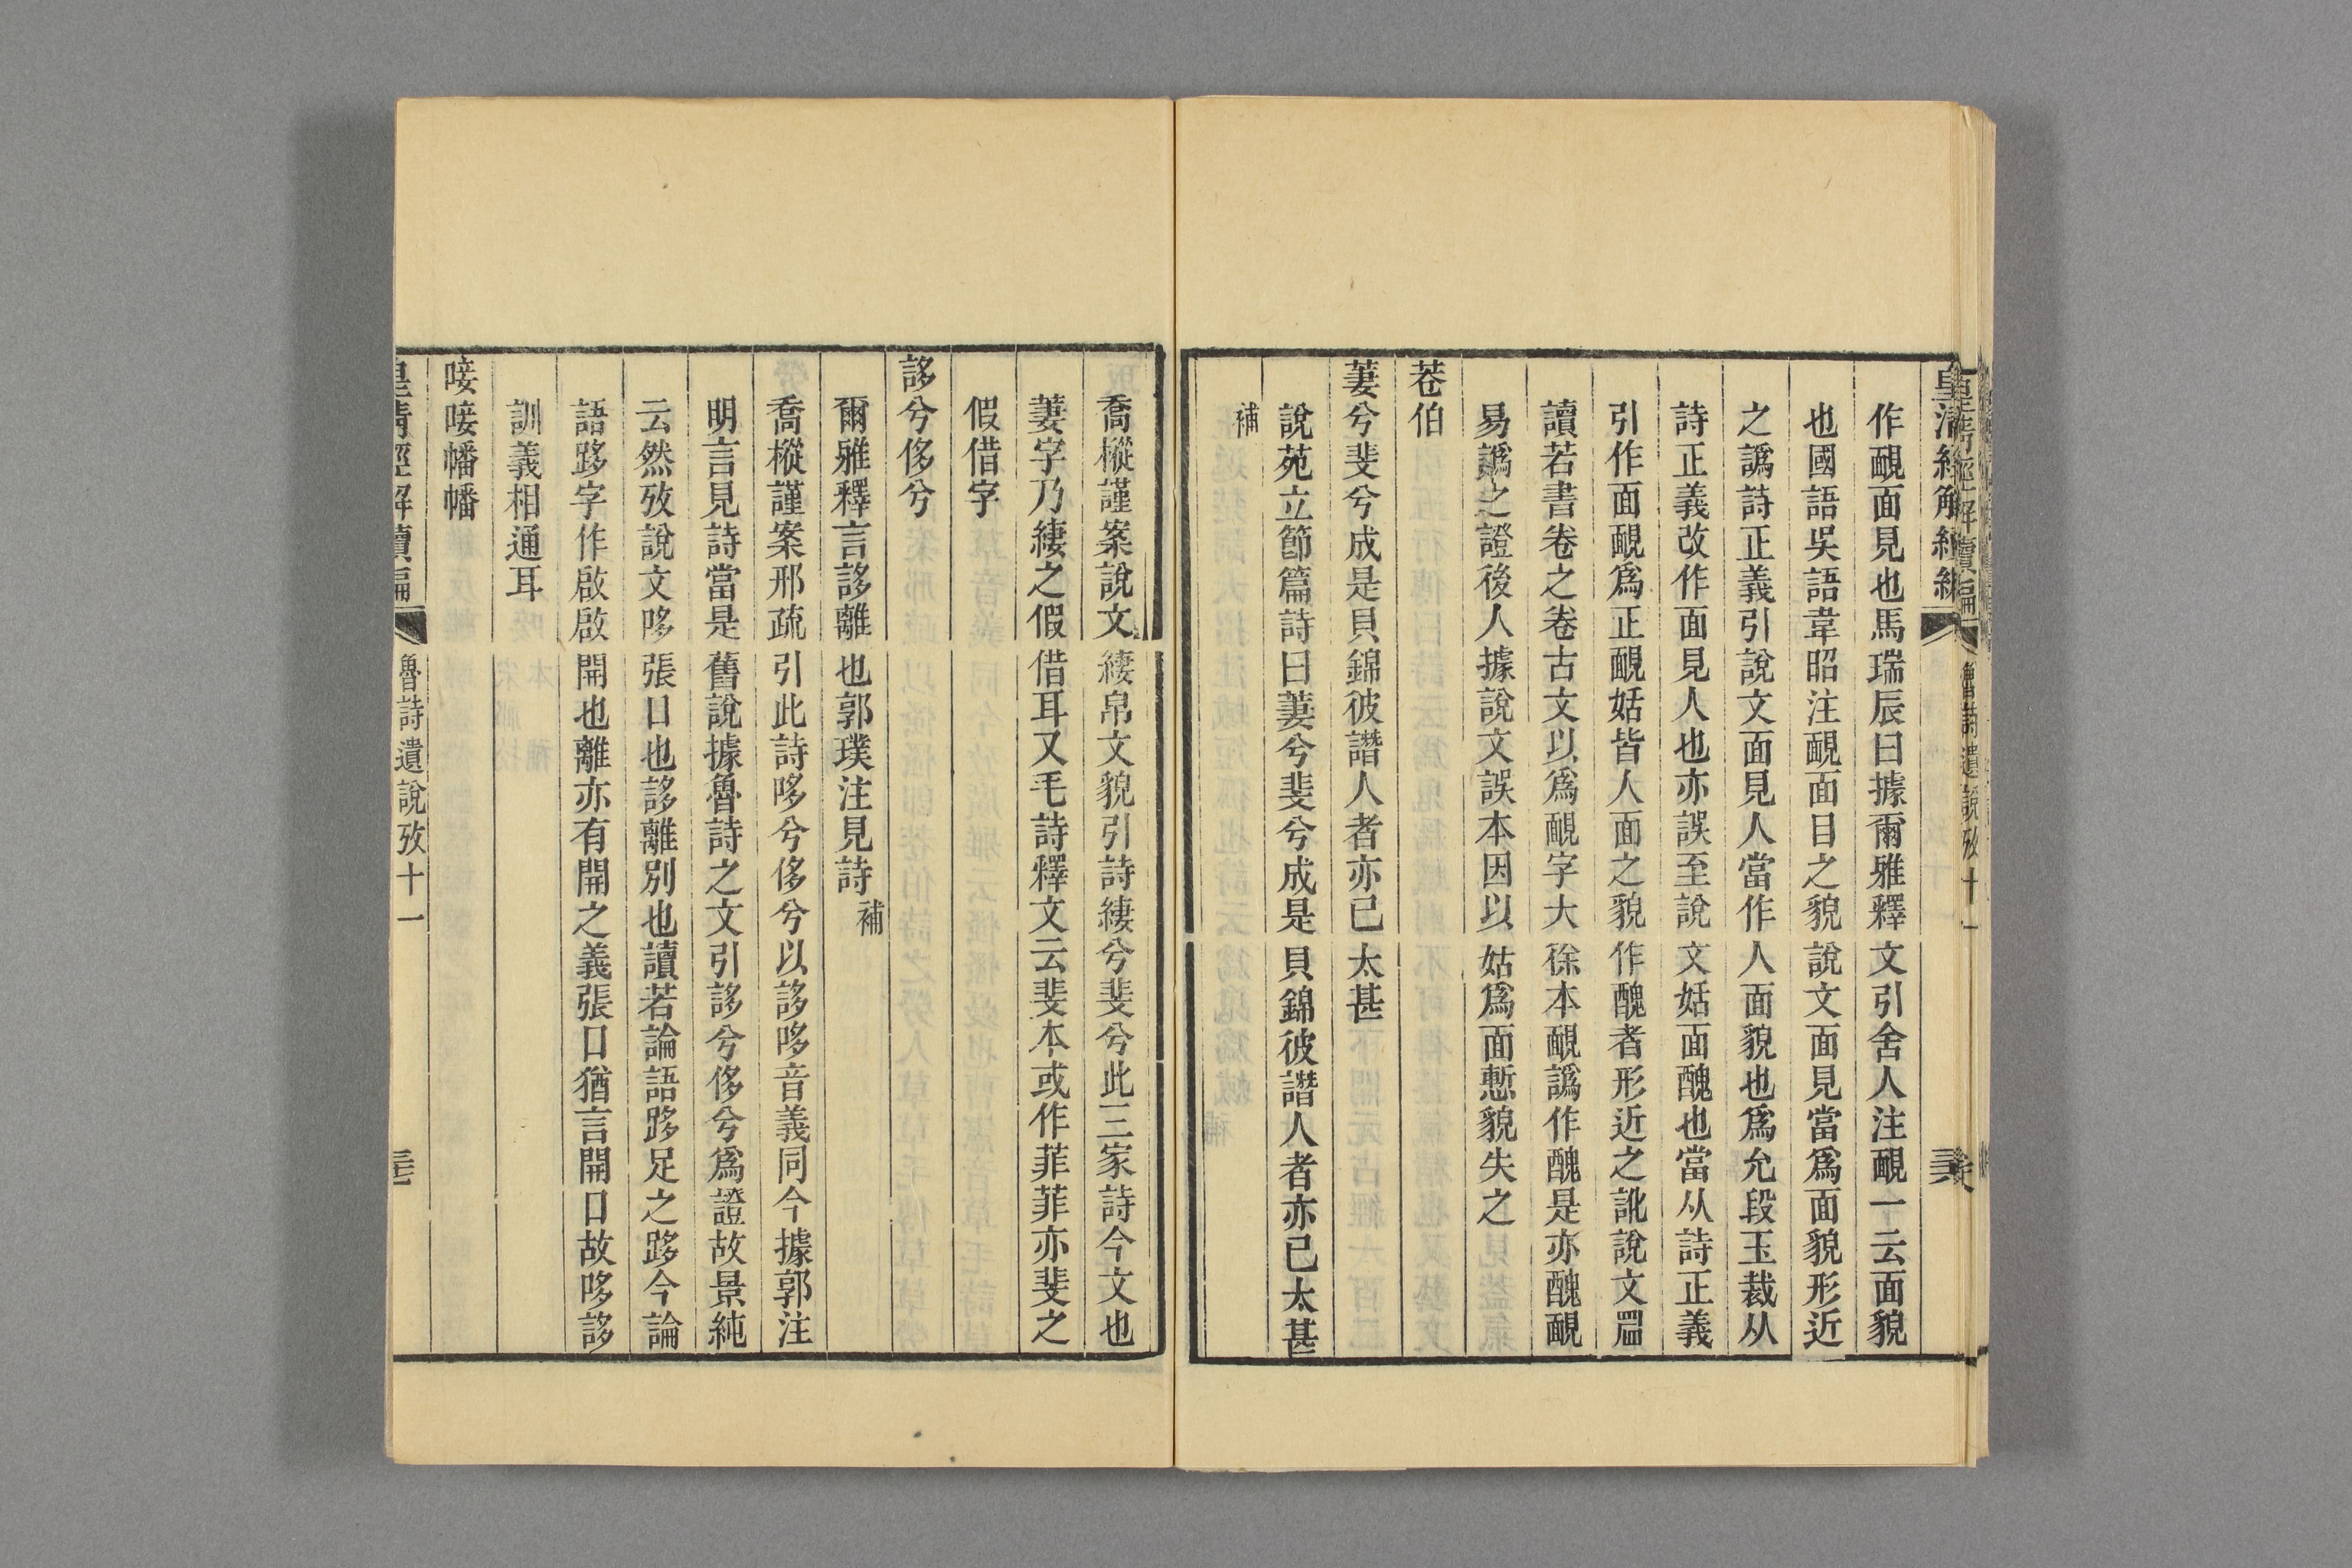 作靦面見也馬瑞辰曰據爾雅釋文引舍人注靦一云面貌
也國語吳語韋昭注靦面目之貌說文面見當爲面貌形近
之譌詩正義引說文面見人當作人面貌也爲允段玉裁从
詩正義改作面見人也亦誤至說文姡面醜也當从詩正義
引作面靦爲正靦姡皆人面之貌作醜者形近之訛說文𥄎
讀若書卷之卷古文以爲靦字大徐本靦譌作醜是亦醜靦
易譌之證後人據說文誤本因以姑爲面慙貌失之
菤伯
萋兮斐兮成是貝錦彼譖人者亦已太甚
說苑立節篇詩曰萋兮斐兮成是貝錦彼譖人者亦已太甚
補
喬樅謹案說文緀帛文貌引詩緀兮斐兮此三家詩今文也
萋字乃緀之假借耳又毛詩釋文云斐本或作菲菲亦斐之
假借字
誃兮侈兮
爾雅釋言誃離也郭璞注見詩補
喬樅謹案邢疏引此詩哆兮侈兮以誃哆音義同今據郭注
明言見詩當是舊說據魯詩之文引誃兮侈兮爲證故景純
云然攷說文哆張口也誃離別也讀若論語跢足之跢今論
語跢字作啟啟開也離亦有開之義張口猶言開口故哆誃
訓義相通耳
唼唼幡幡
皇清經解續編 魯詩遺說攷十一